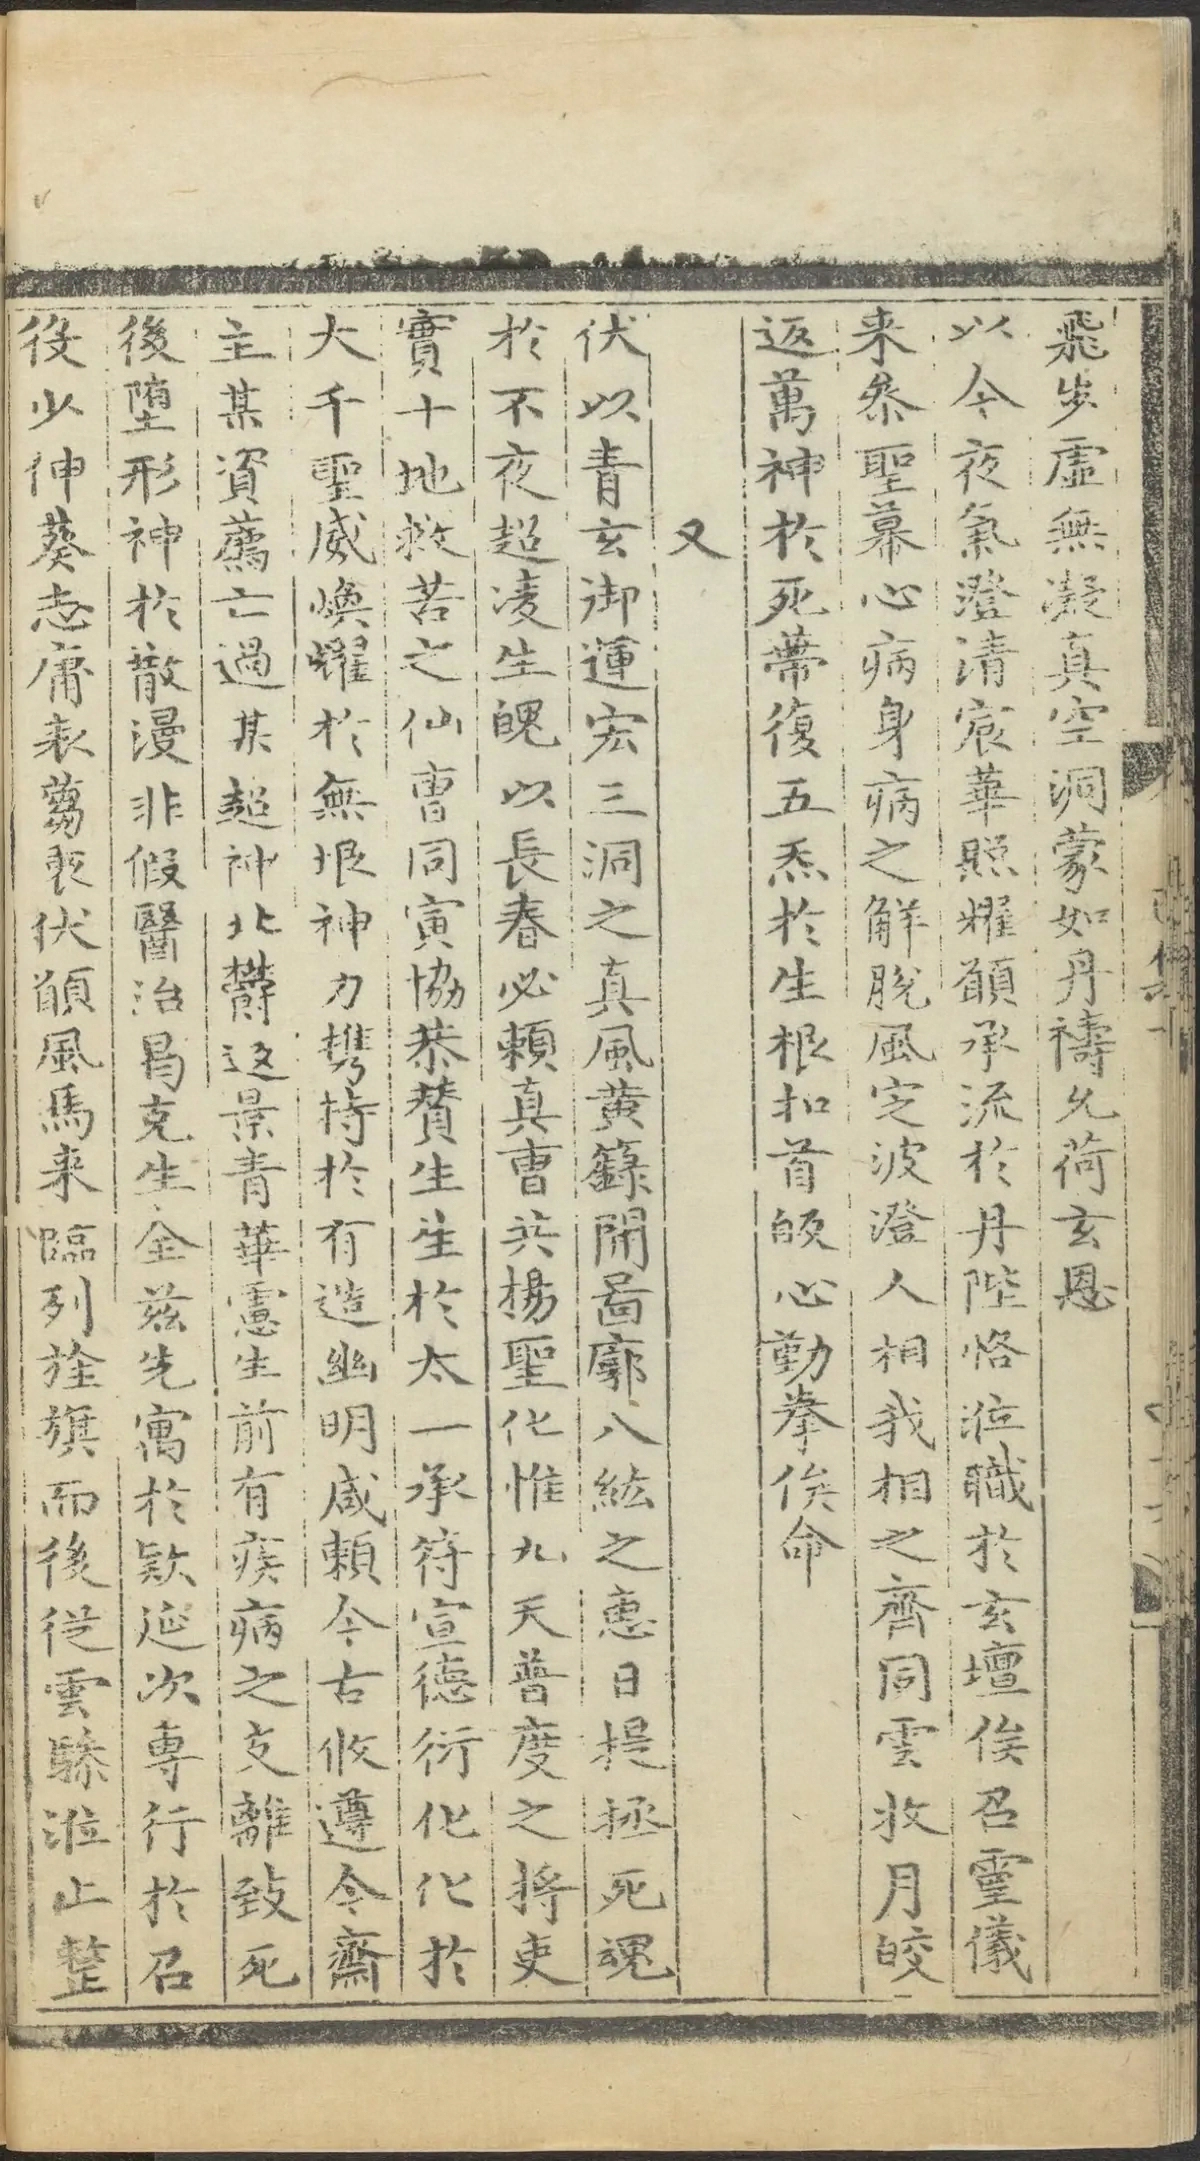 飛步虛無凝真空洞蒙如丹禱允荷玄恩
以今夜氣澄清宸華照耀願承流於丹陛恪涖職於玄壇俟召靈儀
来叅聖幕心病身病之解脫風㝎波澄人相我相之齊同雲收月皎
返萬神於死蔕復五炁於生根扣首皈心勤拳俟命
又
伏以青玄御運宏三洞之真風黄籙開啚廓八紘之惠日提拯死魂
於不夜超凌生魄以長春必頼真曹共揚聖化惟九天普度之將吏
實十地救苦之仙曹同寅協恭賛生生於太一承符宣德衍化化於
大千聖威煥耀於無垠神力㩦持於有造幽明咸頼今古攸遵今齋
主某資薦亡過某超神北欝返景青華憲生前有疾病之支離致死
後堕形神於散漫非假醫治曷克生全兹先寓於欵延次専行於召
役少伸葵志庸表蒭衷伏願風馬来臨列旌旗而後從雲驂涖止整